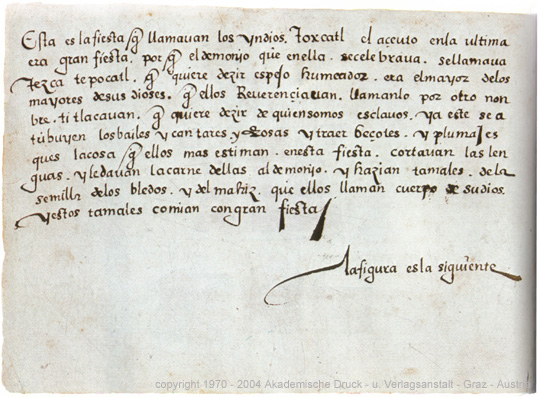 Esta es la fiesta q̃ llamauan los yndios. toxcatl el açeuto enla ultima
era gran fiesta. por q̃ el demonjo que enella. se celebraua. sellamaua
tezca tepocatl. q̃ quiere dezir espejo humeador. era el mayor delos
mayores de sus dioses. q̃ ellos Reuerençiauan. llamanlo por otro non
bre. titlacauan. q̃ quiere dezir de quien somos esclauos. ya este se a
tribuyen los bailes y cantares y Rosas y traer beçotes. y plumajes
ques la cosa q̃ ellos mas estiman. enesta fiesta. cortauan las len
guas. y ledauan la carne dellas al demonjo. y hazian tamales. de la
semilla delos bledos. y del mahiz. que ellos llaman cuerpo de su dios.
y estos tamales comian con gran fiesta
la figura es la siguiente
copyright 1970 - 2004 Akademische Druck - u. Verlagsanstalt - Graz - Austri